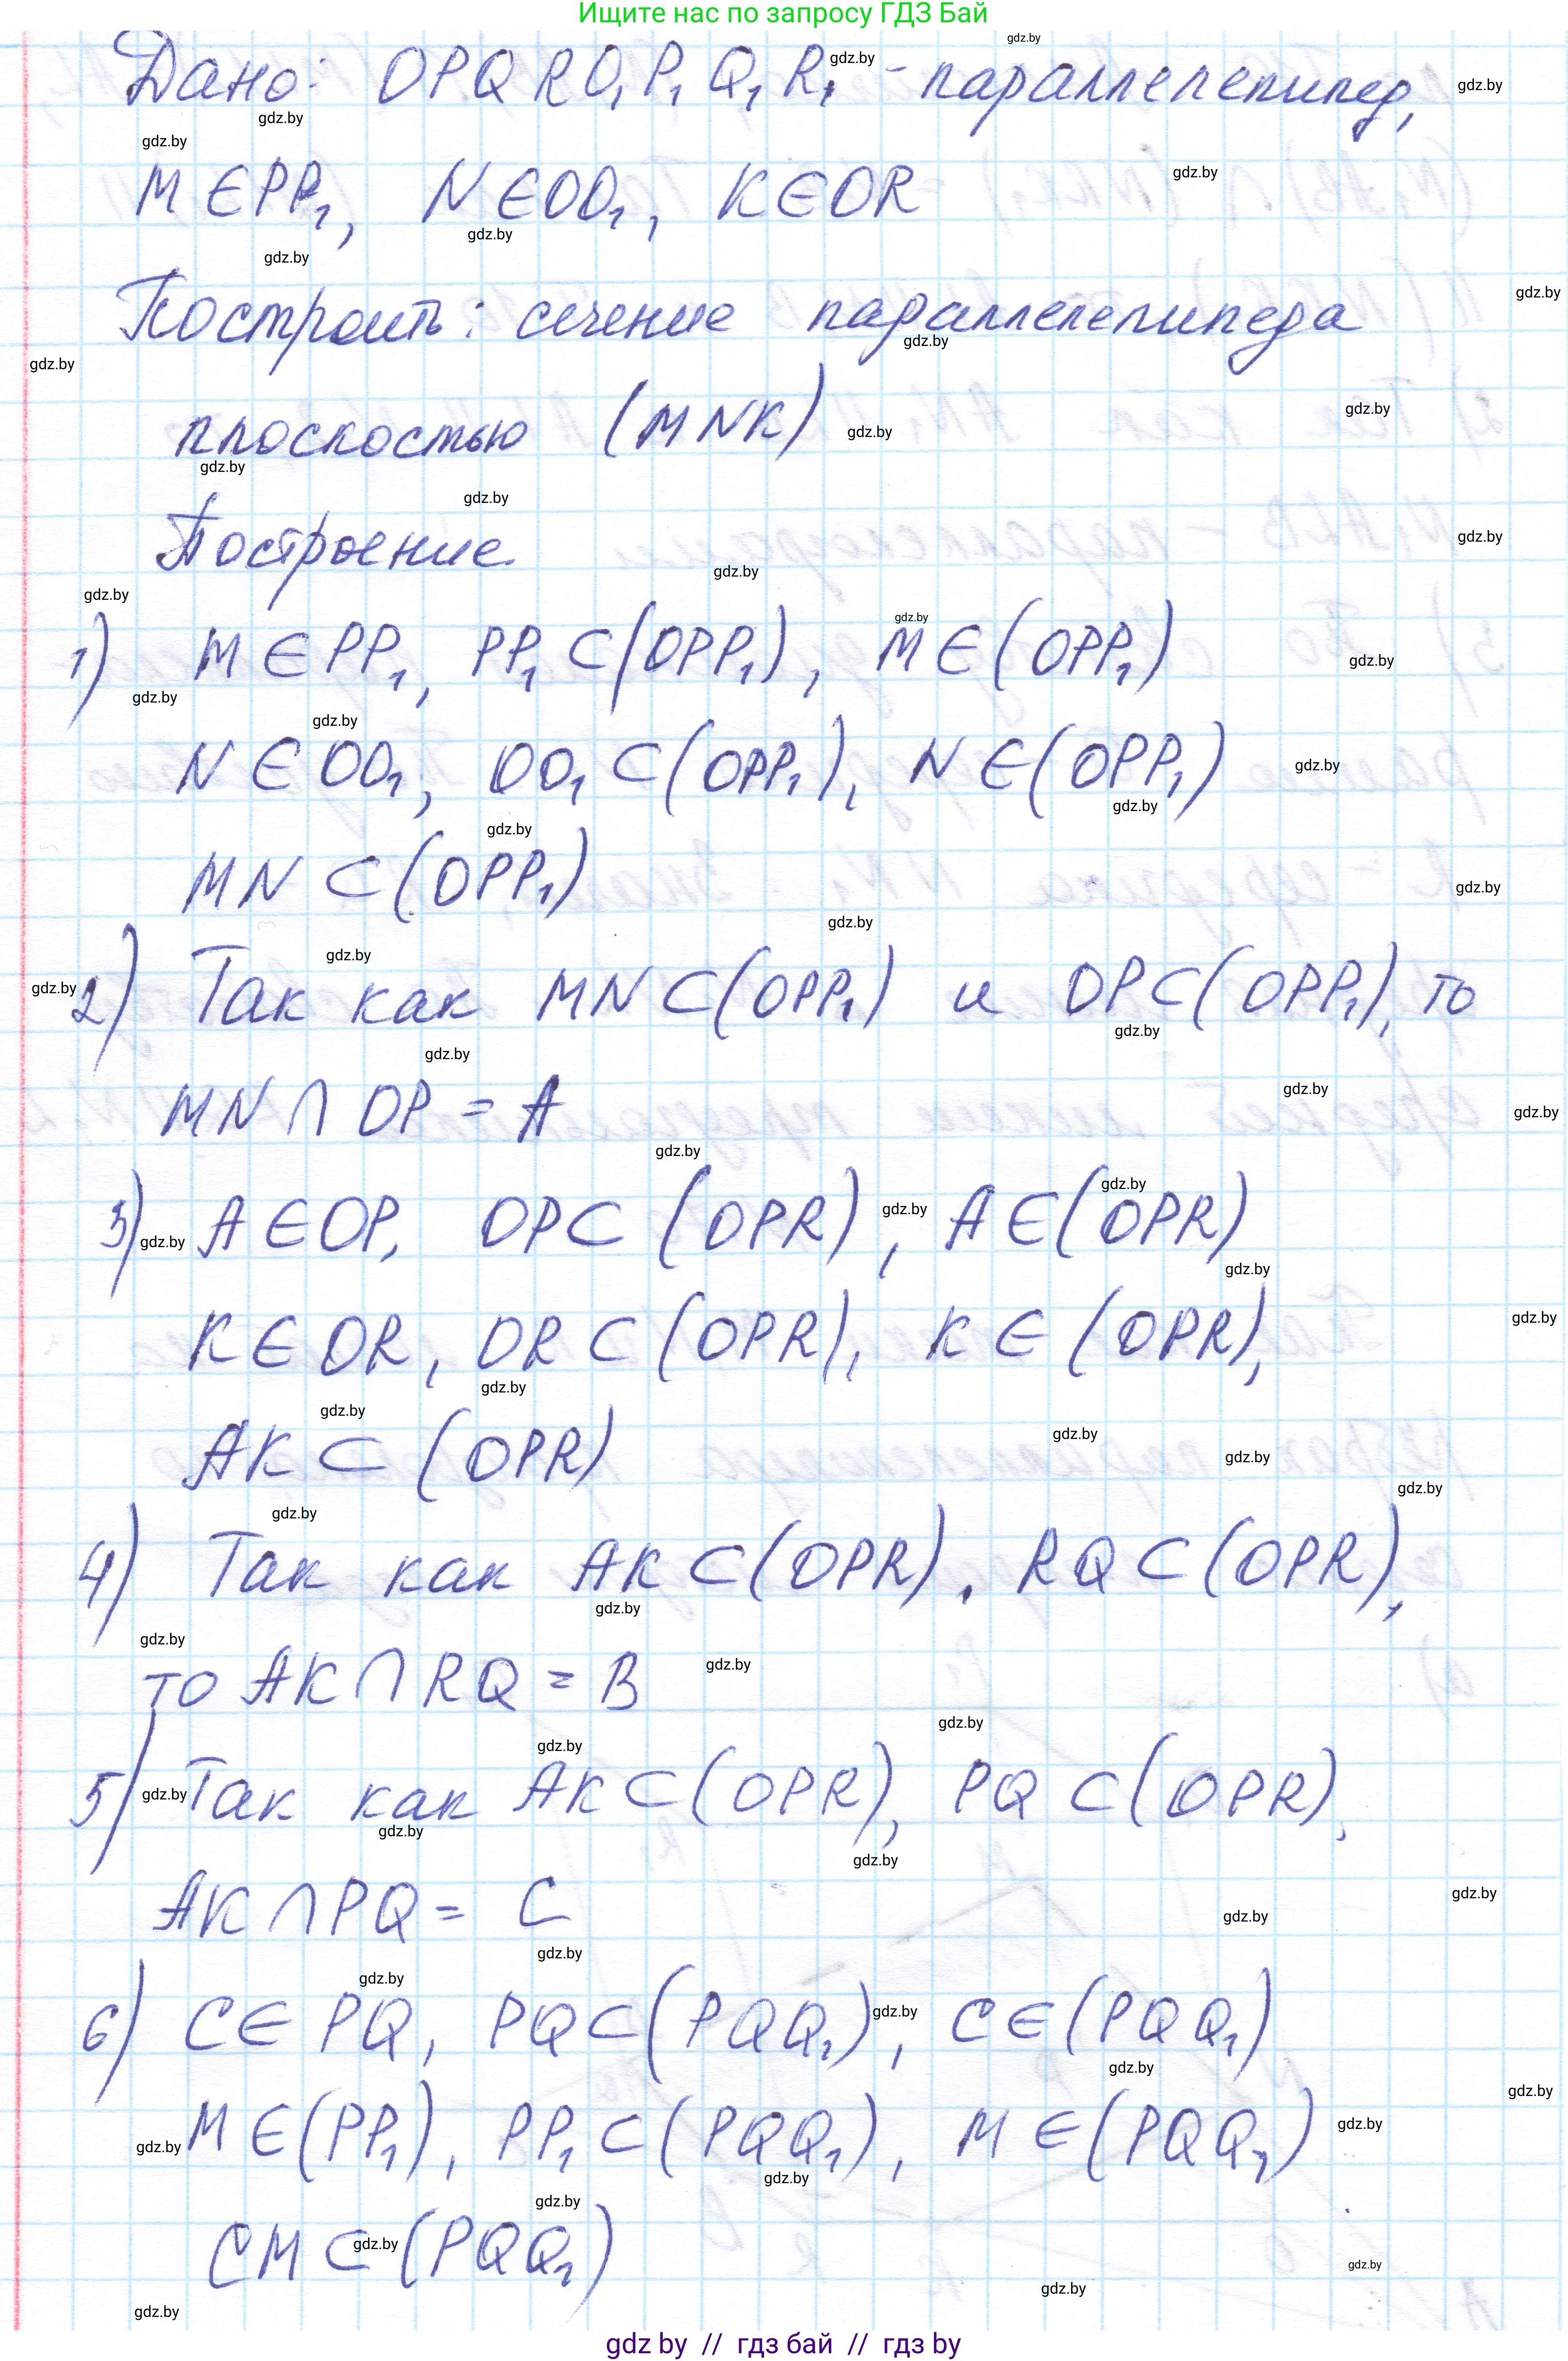 Ищите нас по запросу ГДЗ Бай
Дано: OPQRO₁P₁Q₁R₁ - параллелепипед,
M ∈ PP₁, N ∈ OO₁, K ∈ OR
Построить: сечение параллелепипеда
плоскостью (MNK)
Построение.
1) M ∈ PP₁, PP₁ ⊂ (OPP₁), M ∈ (OPP₁)
N ∈ OO₁, OO₁ ⊂ (OPP₁), N ∈ (OPP₁)
MN ⊂ (OPP₁)
2) Так как MN ⊂ (OPP₁) и OP ⊂ (OPP₁), то
MN ∩ OP = A
3) A ∈ OP, OP ⊂ (OPR), A ∈ (OPR)
K ∈ OR, OR ⊂ (OPR), K ∈ (OPR),
AK ⊂ (OPR)
4) Так как AK ⊂ (OPR), RQ ⊂ (OPR),
то AK ∩ RQ = B
5) Так как AK ⊂ (OPR), PQ ⊂ (OPR),
AK ∩ PQ = C
6) C ∈ PQ, PQ ⊂ (PQQ₁), C ∈ (PQQ₁)
M ∈ (PP₁), PP₁ ⊂ (PQQ₁), M ∈ (PQQ₁)
CM ⊂ (PQQ₁)
gdz by // гдз бай // гдз by